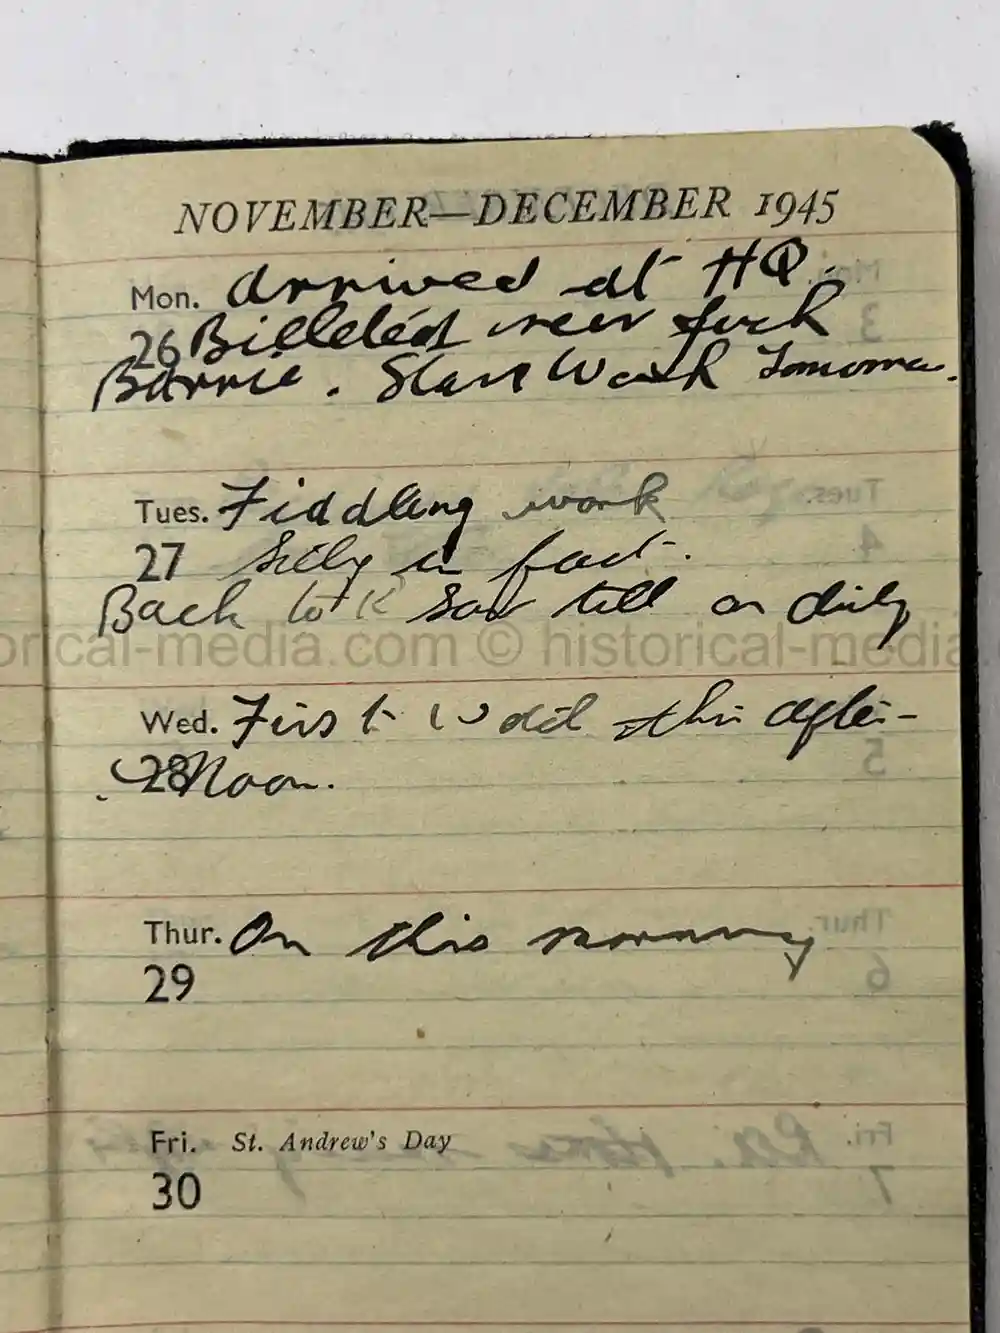 NOVEMBER—DECEMBER 1945
Mon. Arrived at HQ.
26 Billeted near
Barrie. Start Work Tomorrow.
Tues. Fiddling work
27 Silly in fact.
Back to till on duty
historical-media.com © historical-media.
Wed. First this after-
28 Noon.
Thur. On this morning
29
Fri. St. Andrew's Day
30